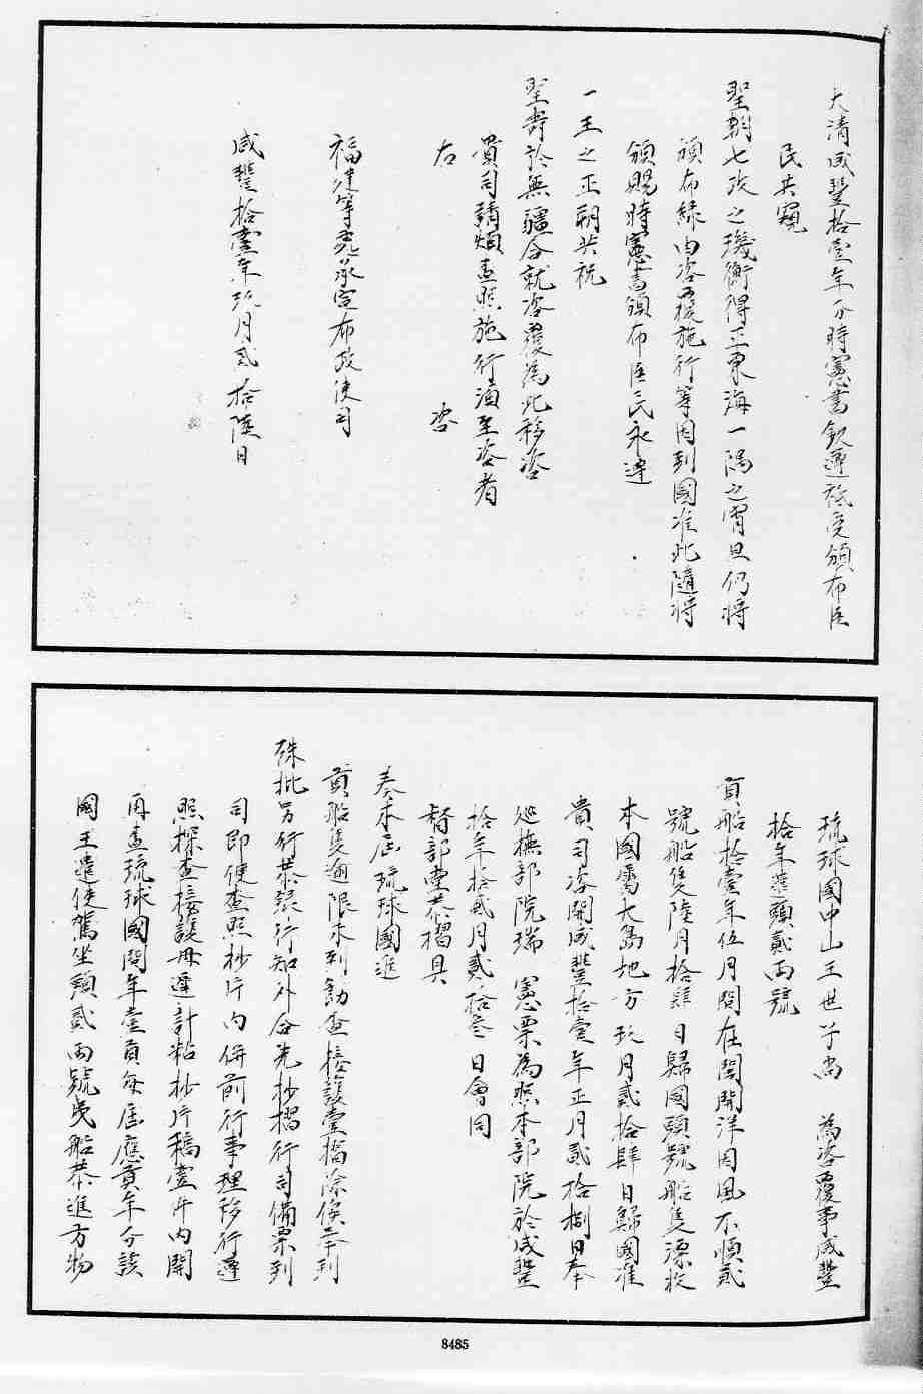 大清咸豐拾壹年分時憲書欽遵祗受頒布臣
民共窺
聖朝七政之璣衡得正東海一隅之宵旦仍將
頒布緣由咨覆施行等因到國准此隨將
頒賜時憲書頒布臣民永遵
一王之正朔共祝
聖壽於無疆合就咨覆為此移咨
貴司請煩查照施行須至咨者
右 咨
福建等處承宣布政使司
咸豐拾壹年玖月貳拾陸日
琉球國中山王世子尚 為咨覆事咸豐
拾年進頭貳兩號
貢船拾壹年伍月間在閩開洋因風不順貳
號船隻陸月拾肆日歸國頭號船隻漂收
本國屬大島地方玖月貳拾肆日歸國准
貴司咨開咸豐拾壹年正月貳拾捌日奉
巡撫部院瑞 憲票為照本部院於咸豐
拾年拾貳月貳拾叁日會同
督部堂恭摺具
奏本屆琉球國進
貢船隻逾限未到飭查接護壹摺除俟奉到
硃批另行恭錄行知外合先抄摺行司備票到
司即便查照抄片內併前行事理移行遵
照探查接護毋遲計粘抄片稿壹件內開
再查琉球國間年壹貢每屆應貢年分該
國王遣使駕坐頭貳兩號夷船恭進方物
8485